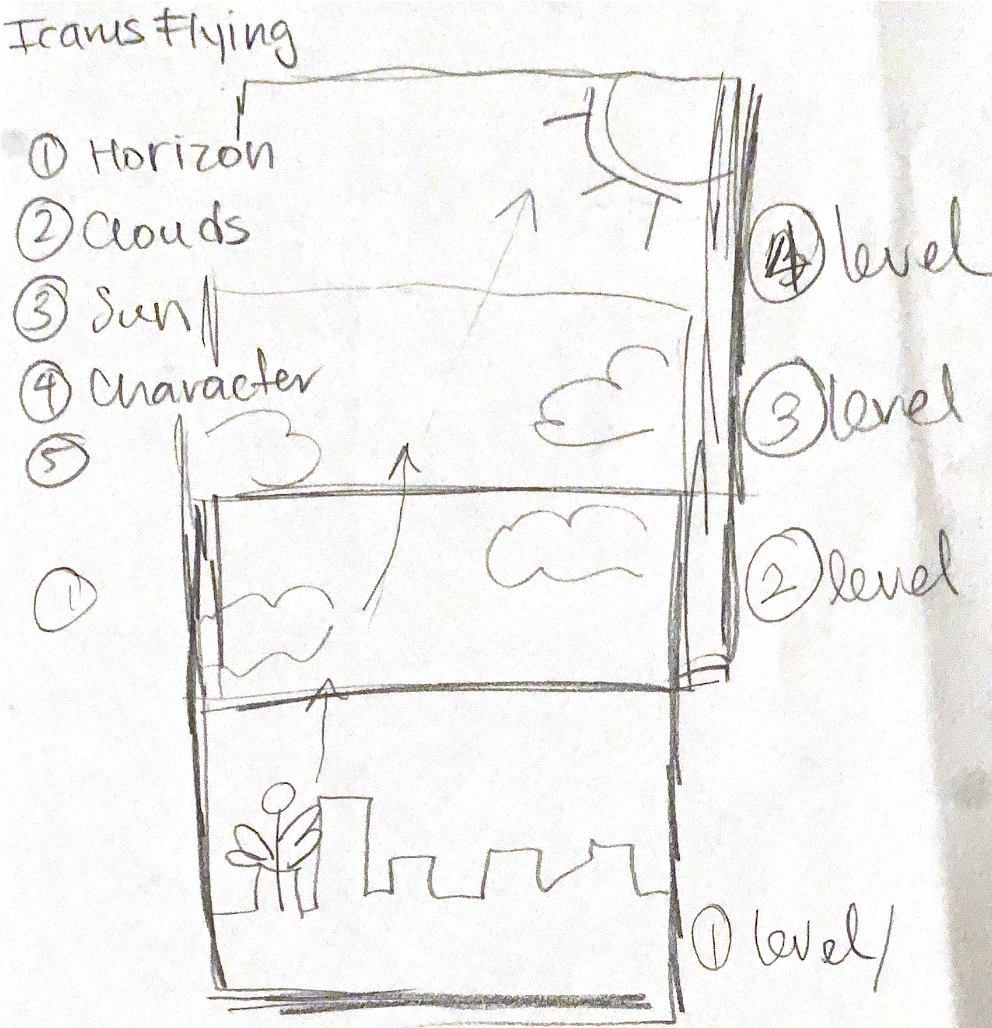 Icarus Flying
① Horizon
② Clouds
③ Sun
④ Character
⑤
①
④ level
③ level
② level
① level